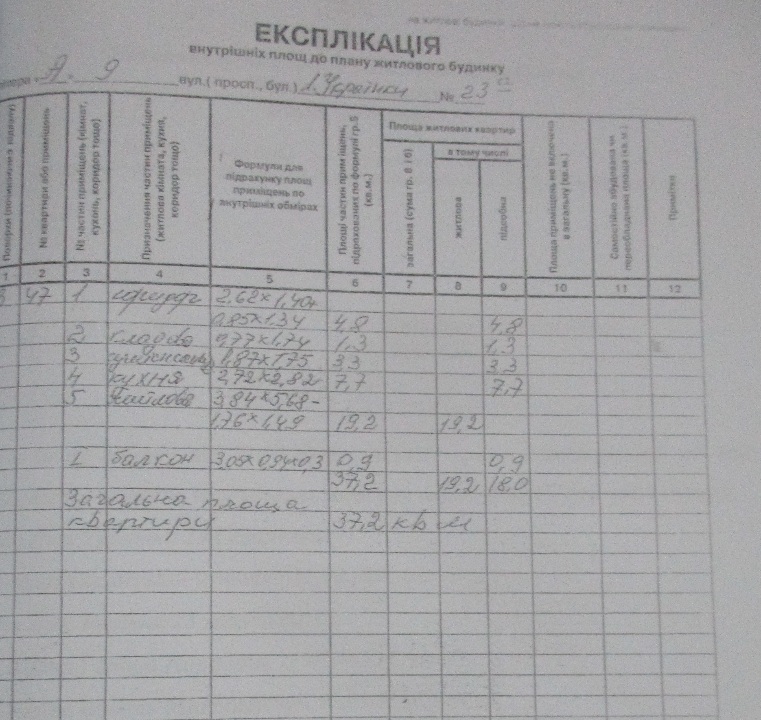 ЕКСПЛІКАЦІЯ
внутрішніх площ до плану житлового будинку
А. 9 вул.( просп., бул.) Л.Українки № 23
№ квартири або приміщень
№ частин приміщень (кімнат, кухонь, коридор тощо)
Призначення частин приміщень (житлова кімната, кухня, коридор тощо)
Формули для підрахунку площі приміщень по внутрішніх обмірах
Площі частин приміщень, підрахованих по формулі гр.5 (кв.м.)
Площа житлових квартир
загальна (сума гр. 8 і 9)
в тому числі
житлова
підсобна
Площа приміщень не включена в загальну (кв.м.)
Самостійно збудована чи переобладнана площа (кв.м.)
Примітка
1 2 3 4 5 6 7 8 9 10 11 12
47 1 коридор 2,62×1,40+
0,85×1,34 4,8 4,8
2 кладова 0,77×1,74 1,3 1,3
3 1,87×1,75 3,3 3,3
4 кухня 2,72×2,82 7,7 7,7
5 житлова 3,84×5,68-
1,76×1,49 19,2 19,2
І балкон 3,05×0,94×0,3 0,9 0,9
37,2 19,2 18,0
Загальна площа
квартири 37,2 кв м